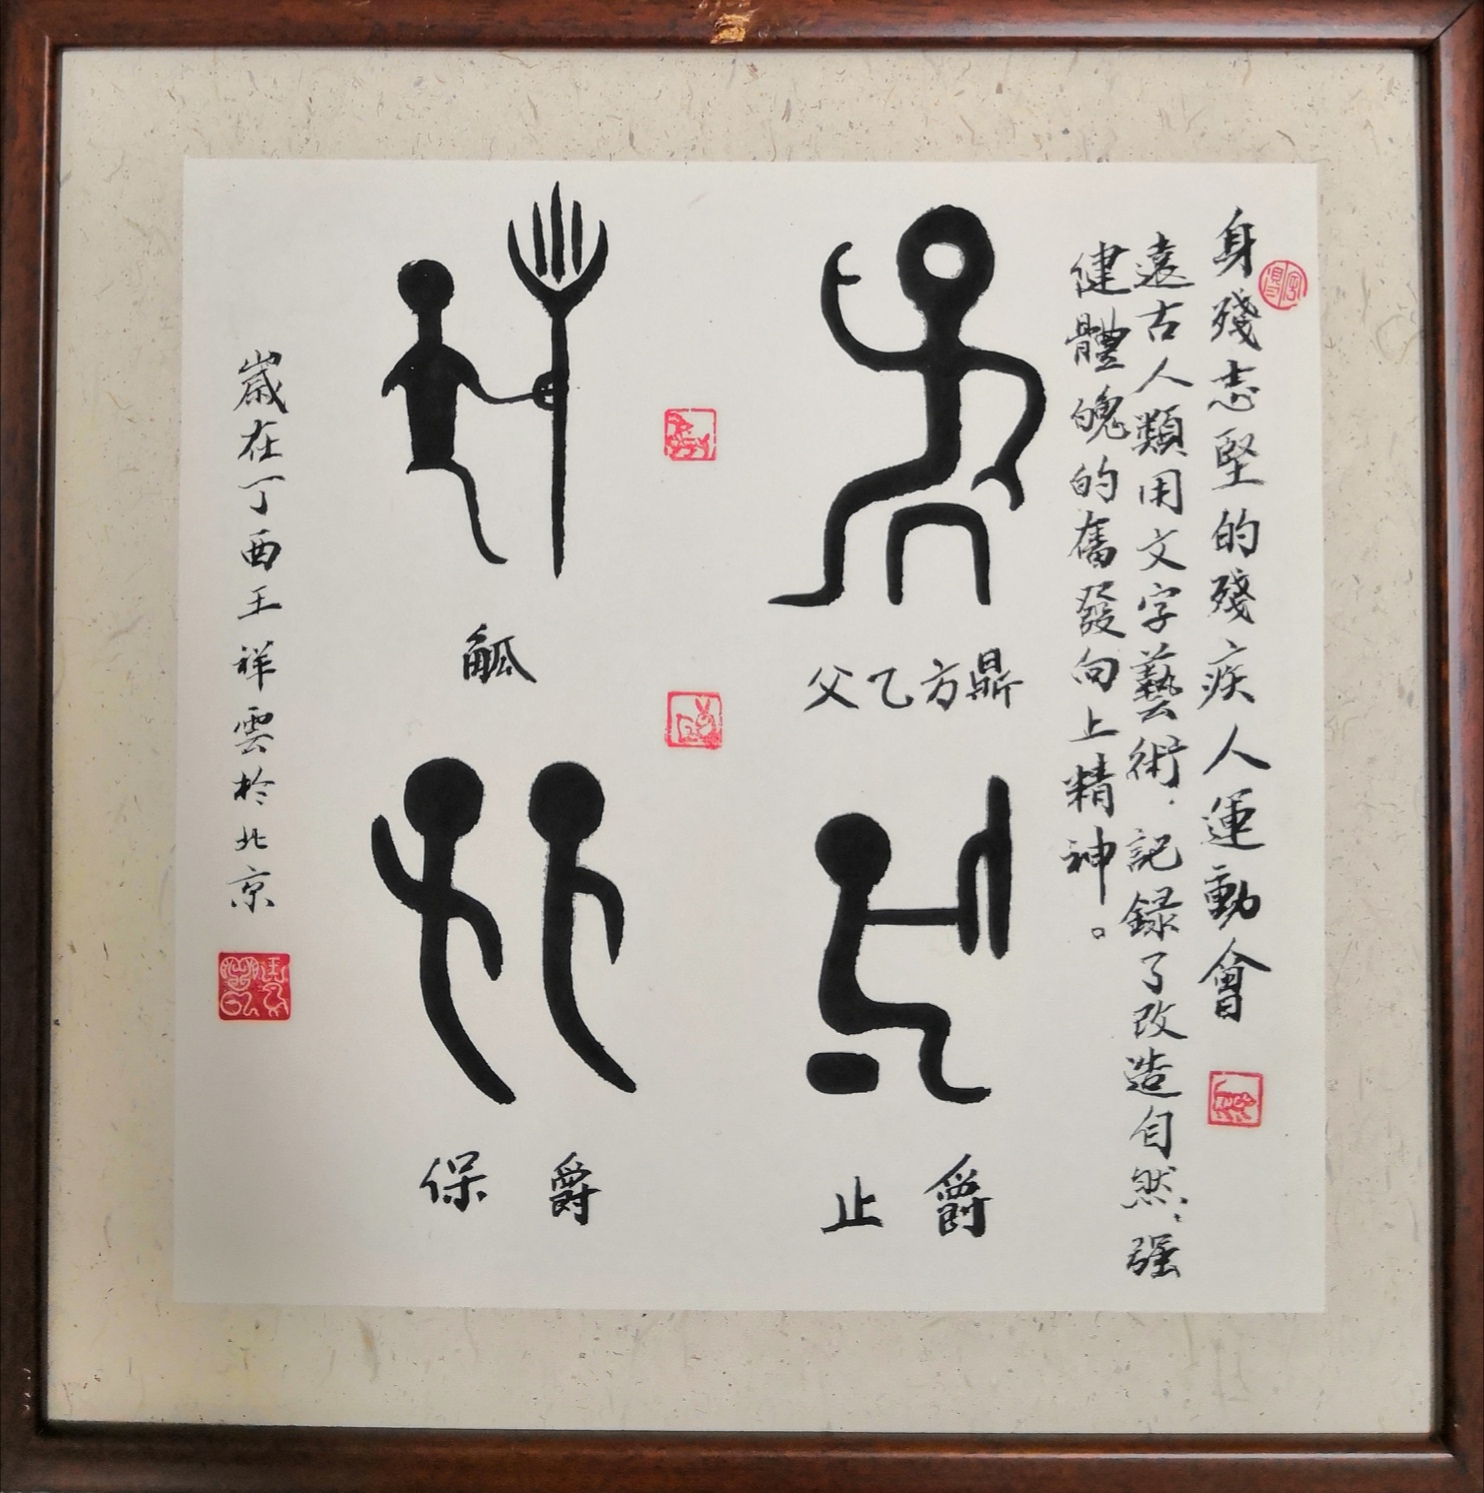 身殘志堅的殘疾人運動會
遠古人類用文字藝術.記録了改造自然、强
健體魄的奮發向上精神。
父乙方鼎
止爵
觚
保爵
歲在丁酉王祥雲於北京